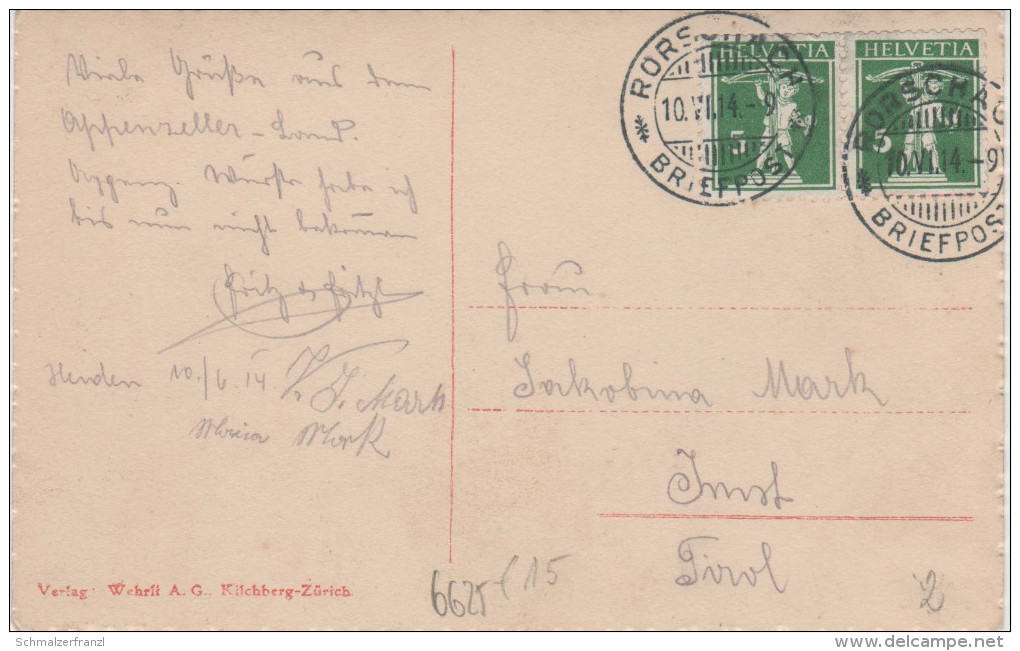 Viele Grüße aus dem
Appenzeller-Land.
Appenz. Würste habe ich
bis nun nicht bekommen
Fritz & Fritzl
Heiden 10./6.14 V. J. Mark
Maria Mark
Verlag: Wehrli A. G., Kilchberg-Zürich
HELVETIA
5
HELVETIA
5
RORSCHACH
10.VI.14.-9
BRIEFPOST
RORSCHAC
10.VI.14.-9
BRIEFPOST
Frau
Jakobina Mark
Imst
Tirol
6625 (15
2
Schmalzerfranzl
delcampe.net